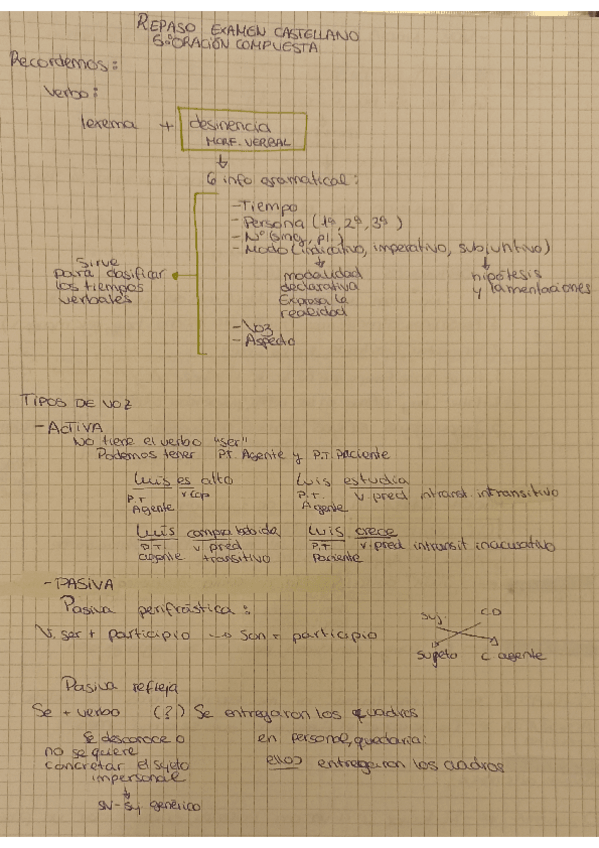 REPASO EXAMEN CASTELLANO
5. ORACIÓN COMPUESTA
Recordemos:
Verbo:
lexema + desinencia
MORF. VERBAL
6 info gramatical:
-Tiempo
-Persona (1ª, 2ª, 3ª)
-Nº (sing, pl.)
-Modo (indicativo, imperativo, subjuntivo)
modalidad
declarativa
Expresa la
realidad
hipótesis
y lamentaciones
Sirve
para clasificar
los tiempos
verbales
-Voz
-Aspecto
TIPOS DE VOZ
-ACTIVA
No tiene el verbo "ser"
Podemos tener PT. Agente y P.T. Paciente
Luis es alto
P.T V Cop
Agente
Luis estudia
P.T. V. pred intransit. intransitivo
Agente
Luis compra bebida
P.T V pred
agente transitivo
Luis crece
P.T V. pred intransit inacusativo
Paciente
-PASIVA
Pasiva perifrástica:
V. ser + participio → Son + participio
Suj. CO
sujeto C agente
Pasiva refleja
Se + verbo (3) Se entregaron los cuadros
Se desconoce o
no se quiere
concretar el sujeto
impersonal
SN- Suj generico
en personal, quedaría:
ellos entregaron los cuadros